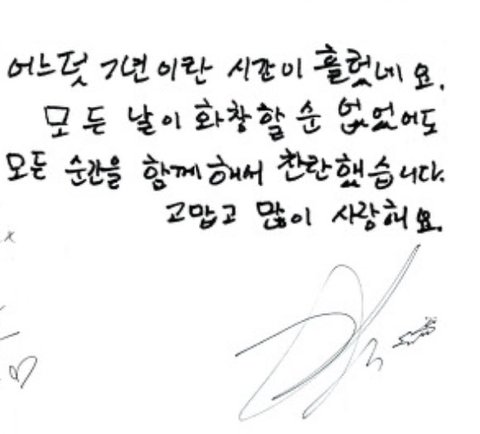 어느덧 7년이란 시간이 흘렀네요.
모든 날이 화창할 순 없었어도
모든 순간을 함께해서 찬란했습니다.
고맙고 많이 사랑해요.